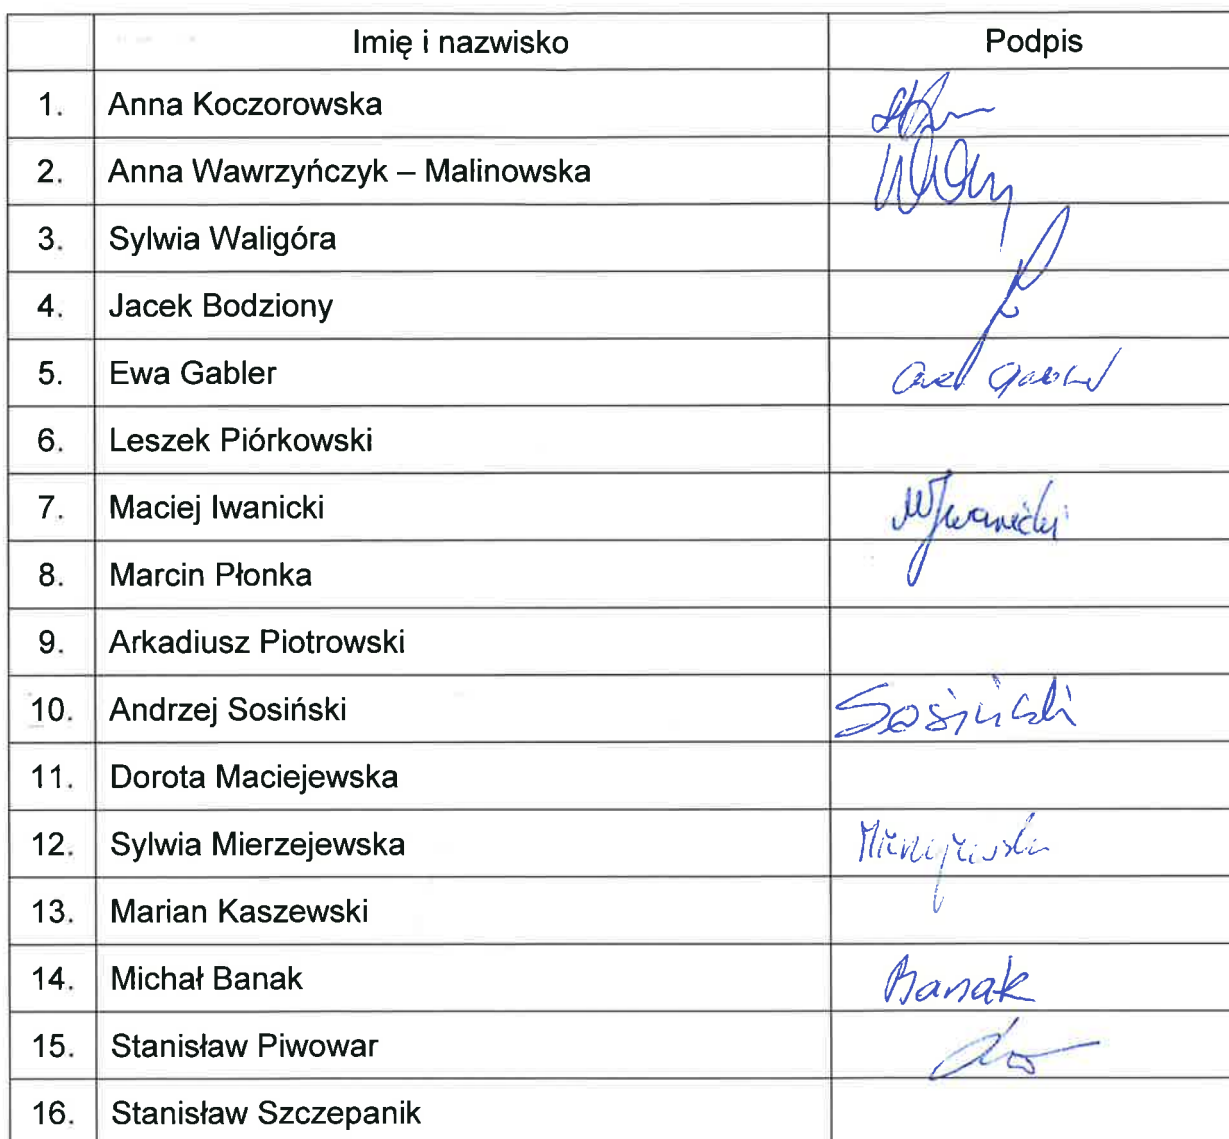 Imię i nazwisko Podpis
1. Anna Koczorowska
2. Anna Wawrzyńczyk – Malinowska
3. Sylwia Waligóra
4. Jacek Bodziony
5. Ewa Gabler
6. Leszek Piórkowski
7. Maciej Iwanicki MIwanicki
8. Marcin Płonka
9. Arkadiusz Piotrowski
10. Andrzej Sosiński Sosiński
11. Dorota Maciejewska
12. Sylwia Mierzejewska Mierzejewska
13. Marian Kaszewski
14. Michał Banak Banak
15. Stanisław Piwowar
16. Stanisław Szczepanik